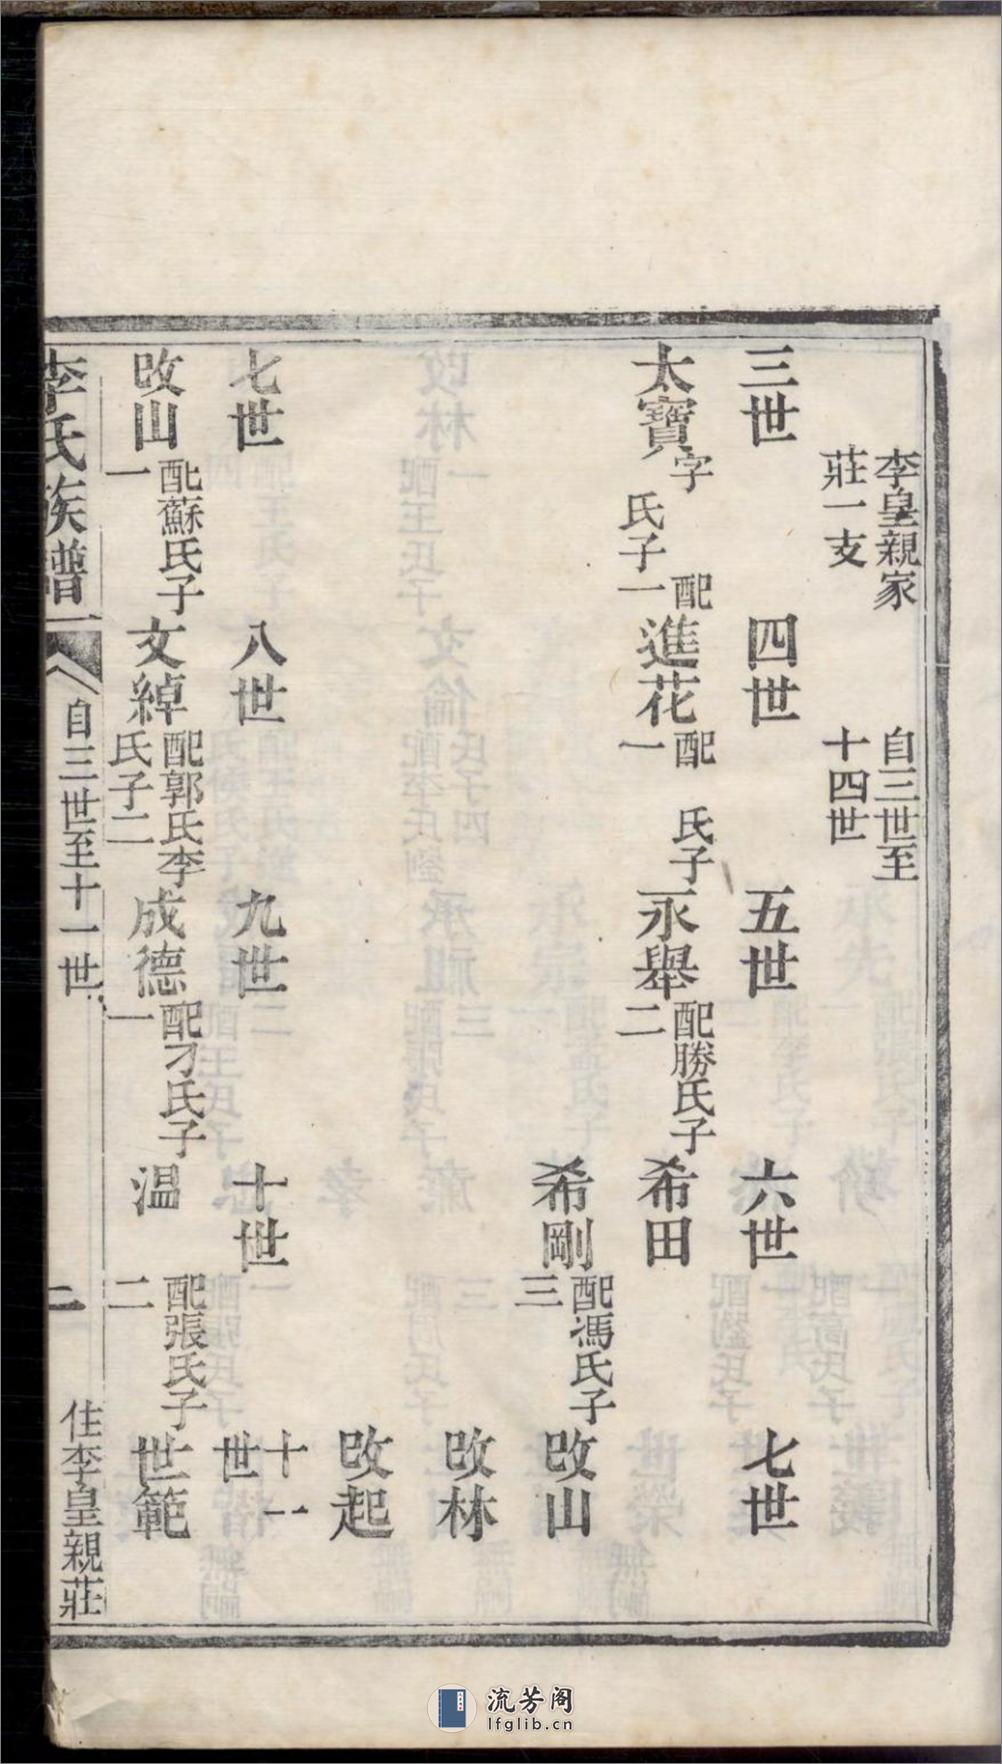 李皇親家
莊一支
自三世至
十四世
三世
四世
五世
六世
七世
太寶
字 配
氏子一
進花
配 氏子
一
永舉
配勝氏子
二
希田
希剛
配馮氏子
三
改山
改林
改起
七世
八世
九世
十世
十一
世
改山
配蘇氏子
一
文綽
配郭氏李
氏子二
成德
配刁氏子
一
温
配張氏子
二
世範
李氏族譜
自三世至十一世
二
住李皇親莊
流芳阁
lfglib.cn